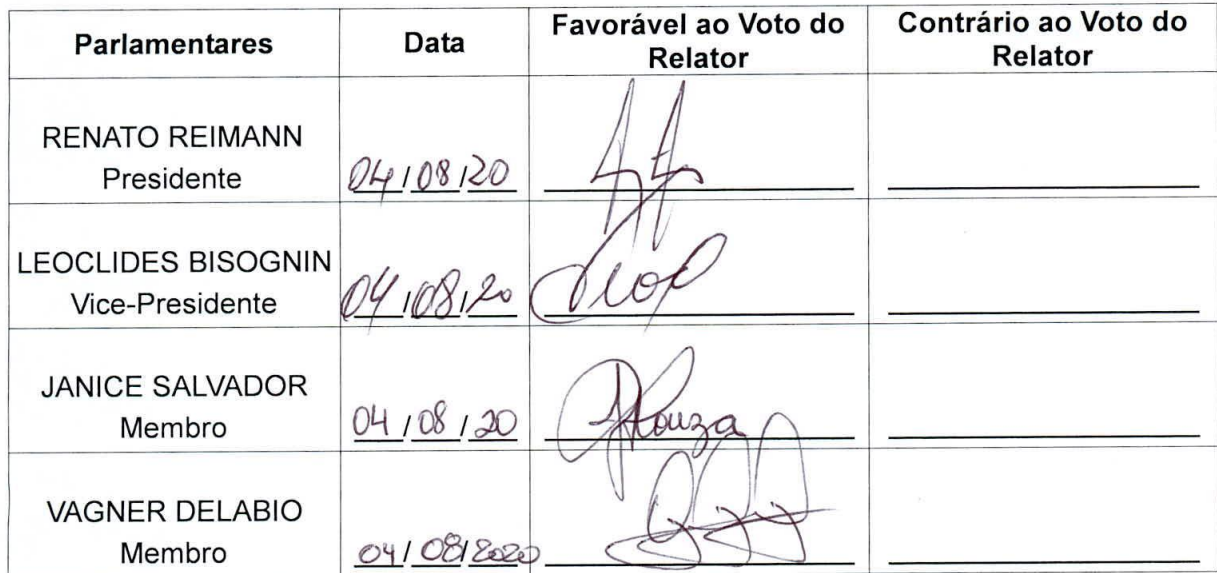 Parlamentares Data Favorável ao Voto do Relator Contrário ao Voto do Relator
RENATO REIMANN
Presidente 04/08/20
LEOCLIDES BISOGNIN
Vice-Presidente 04/08/20
JANICE SALVADOR
Membro 04/08/20 Souza
VAGNER DELABIO
Membro 04/08/2020